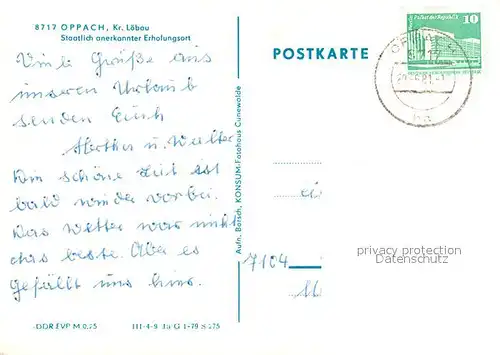 8717 OPPACH, Kr. Löbau
Staatlich anerkannter Erholungsort
Viele Grüße aus
unseren Urlaub
senden Euch
Hertha u. Walter
Die schöne Zeit ist
bald wieder vorbei.
Das Wetter war nicht
das beste. Aber es
gefällt uns hier.
DDR EVP M 0,25
III-4-9 Ja G 1-79 S 275
Aufn. Bartsch, KONSUM-Fotohaus Cunewalde
POSTKARTE
10
7104
privacy protection
Datenschutz